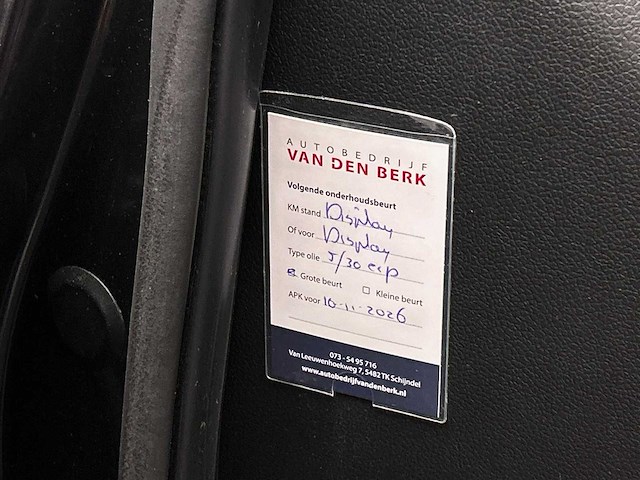 AUTOBEDRIJF
VAN DEN BERK
Volgende onderhoudsbeurt
KM stand Display
Of voor Display
Type olie 5/30 ecp
Grote beurt □ Kleine beurt
APK voor 10-11-2026
073 - 54 95 716
Van Leeuwenhoekweg 7, 5482 TK Schijndel
www.autobedrijfvandenberk.nl